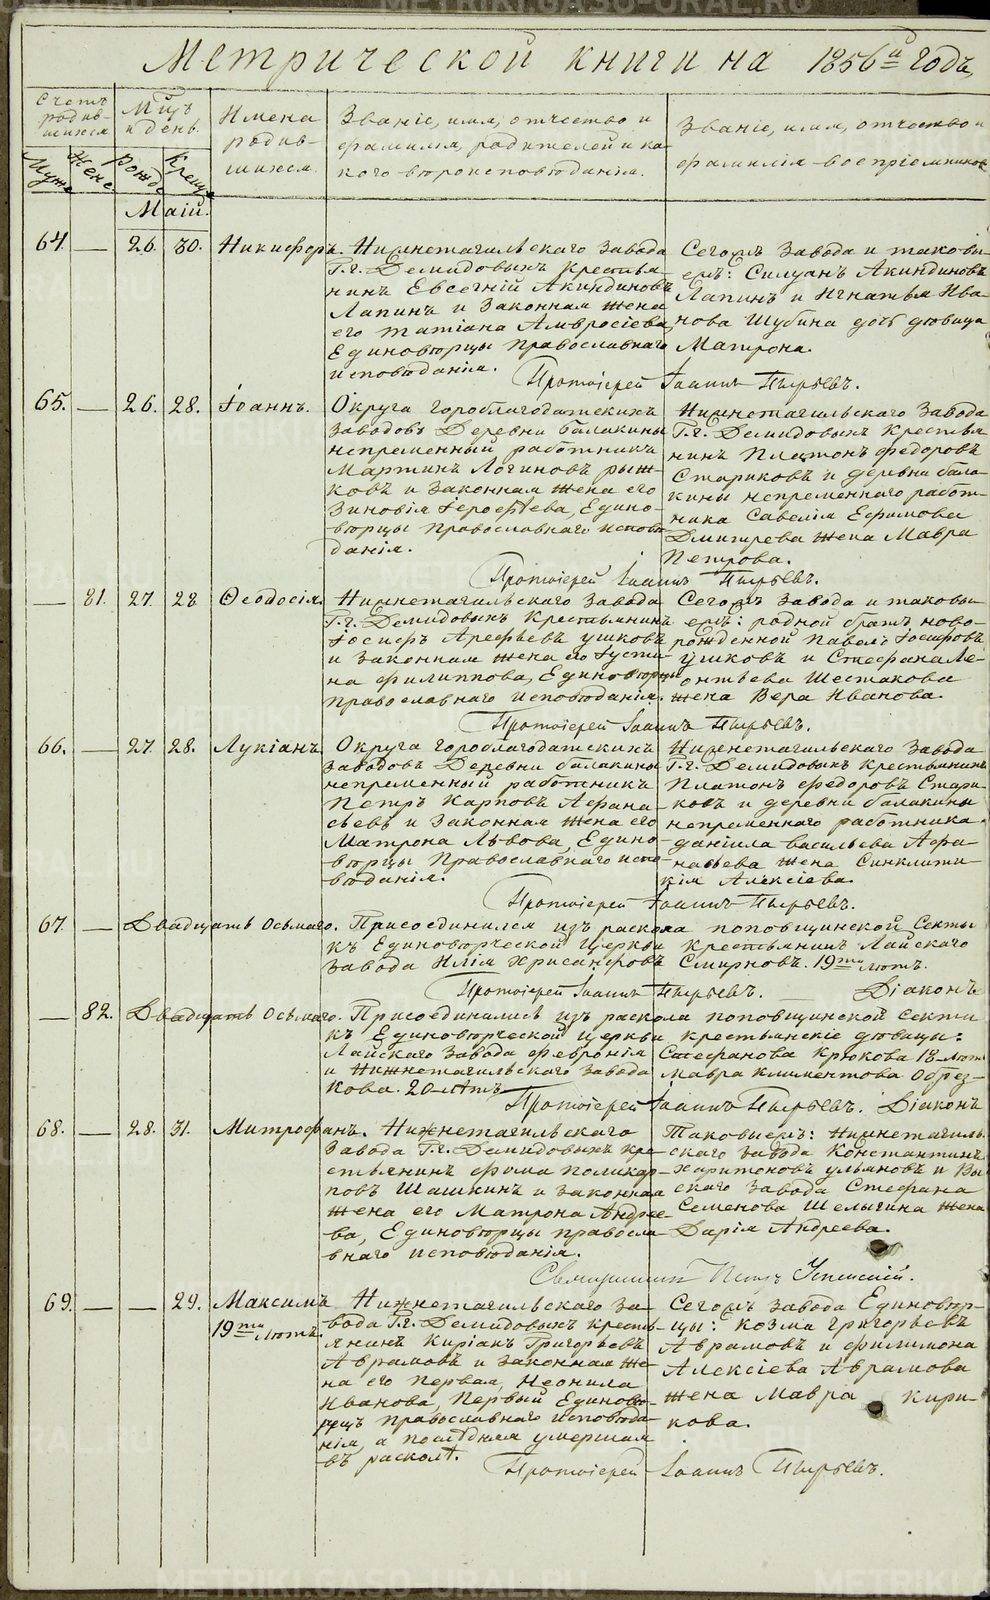 Метрической книги на 1856й годъ,
Счетъ родив-шихся
Мужс
Женс
Мцъ и день.
Рожд
Крещ
Имена родив-шихся.
Званіе, имя, отчество и фамилія, родителей и ка-кого вѣроисповѣданія.
Званіе, имя, отчество и фамилія воспріемниковъ
Маій.
64. — 26. 30. Никифоръ.
Нижнетагильскаго завода
Г.г. Демидовыхъ крестья-
нинъ Евсегній Акиндиновъ
Лапинъ и законная жена
его Татіана Амвросіева,
Единовѣрцы православнаго
исповѣданія.
Сегожъ завода и таковы-
ежъ: Силуанъ Акиндиновъ
Лапинъ и Игнатья Ива-
нова Шубина дочь дѣвица
Матрона.
Протоіерей Іоаннъ Пырьевъ.
65. — 26. 28. Іоаннъ.
Округа Гороблагодатскихъ
заводовъ Деревни Балакины
непременный работникъ
Мартинъ Логиновъ Рыж-
ковъ и законная жена его
Зиновія Іерофѣева, Едино-
вѣрцы православнаго исповѣ
данія.
Нижнетагильскаго завода
Г.г. Демидовыхъ крестья-
нинъ Платонъ Федоровъ
Стариковъ и деревни бала-
кины непременнаго работ-
ника Савелія Ефимова
Дмитрева жена Мавра
Петрова.
Протоіерей Іоаннъ Пырьевъ.
— 81. 27. 28 Ѳеодосія.
Нижнетагильскаго завода
Г.г. Демидовыхъ Крестьянинъ
Іосифъ Арефьевъ Ушковъ
и законная жена его Іусти-
на Филиппова, Единовѣрцы
православнаго исповѣданія.
Сегожъ завода и таковы-
ежъ: родной братъ ново-
рожденной Павелъ Іосифовъ
Ушковъ и Стефана Ле-
онтьева Шестакова
жена Вера Иванова.
Протоіерей Іоаннъ Пырьевъ.
66. — 27. 28. Лукіанъ.
Округа Гороблагодатскихъ
заводовъ Деревни балакины
непременный работникъ
Петръ Карповъ Афана-
сьевъ и законная жена его
Матрона Львова, Едино-
вѣрцы Православнаго испо-
вѣданія.
Нижнетагильскаго завода
Г.г. Демидовыхъ Крестьянинъ
Платонъ Федоровъ Стари-
ковъ и деревни балакины
непременнаго работника
даніила Васильева Афа-
насьева жена Синклити-
кія Алексіева.
Протоіерей Іоаннъ Пырьевъ.
67. Двадцать Осьмаго. Присоединился изъ раскола поповщинской Секты
къ Единовѣрческой Церкви крестьянинъ Лайскаго
завода Илія Хрисанфовъ Смирновъ. 19ти лѣтъ.
Протоіерей Іоаннъ Пырьевъ. Діаконъ
— 82. Двадцать Осьмаго. Присоединились изъ раскола поповщинской секты
къ Единовѣрческой церкви крестьянскіе дѣвицы:
Лайскаго завода Февронія Стефанова Крюкова 18-лѣтъ
и Нижнетагильскаго завода Мавра Климентова Обрез-
кова. 20 лѣтъ
Протоіерей Іоаннъ Пырьевъ. Діаконъ
68. — 28. 31. Митрофанъ.
Нижнетагильскаго
завода Г.г. Демидовыхъ кре-
стьянинъ Фома Поликар-
повъ Шашкинъ и законная
жена его Матрона Андрее-
ва, Единовѣрцы правосла-
внаго исповѣданія.
Таковыежъ: Нижнетагиль-
скаго завода Константинъ
Харитоновъ Ульяновъ и Вы
скаго завода Стефана
Семенова Шелыгина жена
Дарія Андреева.
Священникъ Петръ Успенскій.
69. — — 29. Максимъ 19ти лѣтъ.
Нижнетагильскаго за-
вода Г.г. Демидовыхъ кресть-
янинъ Киріакъ Григорьевъ
Аврамовъ и законная же-
на его первая, Неонила
Иванова, Первый Единовѣ-
рецъ православнаго исповѣда-
нія, а последняя умершая
въ расколѣ.
Сегожъ завода Единовѣр-
цы: Козма Григорьевъ
Аврамовъ и Филимона
Алексіева Аврамова
жена Мавра Кири-
кова.
Протоіерей Іоаннъ Пырьевъ.
METRIKI.GASO-URAL.RU